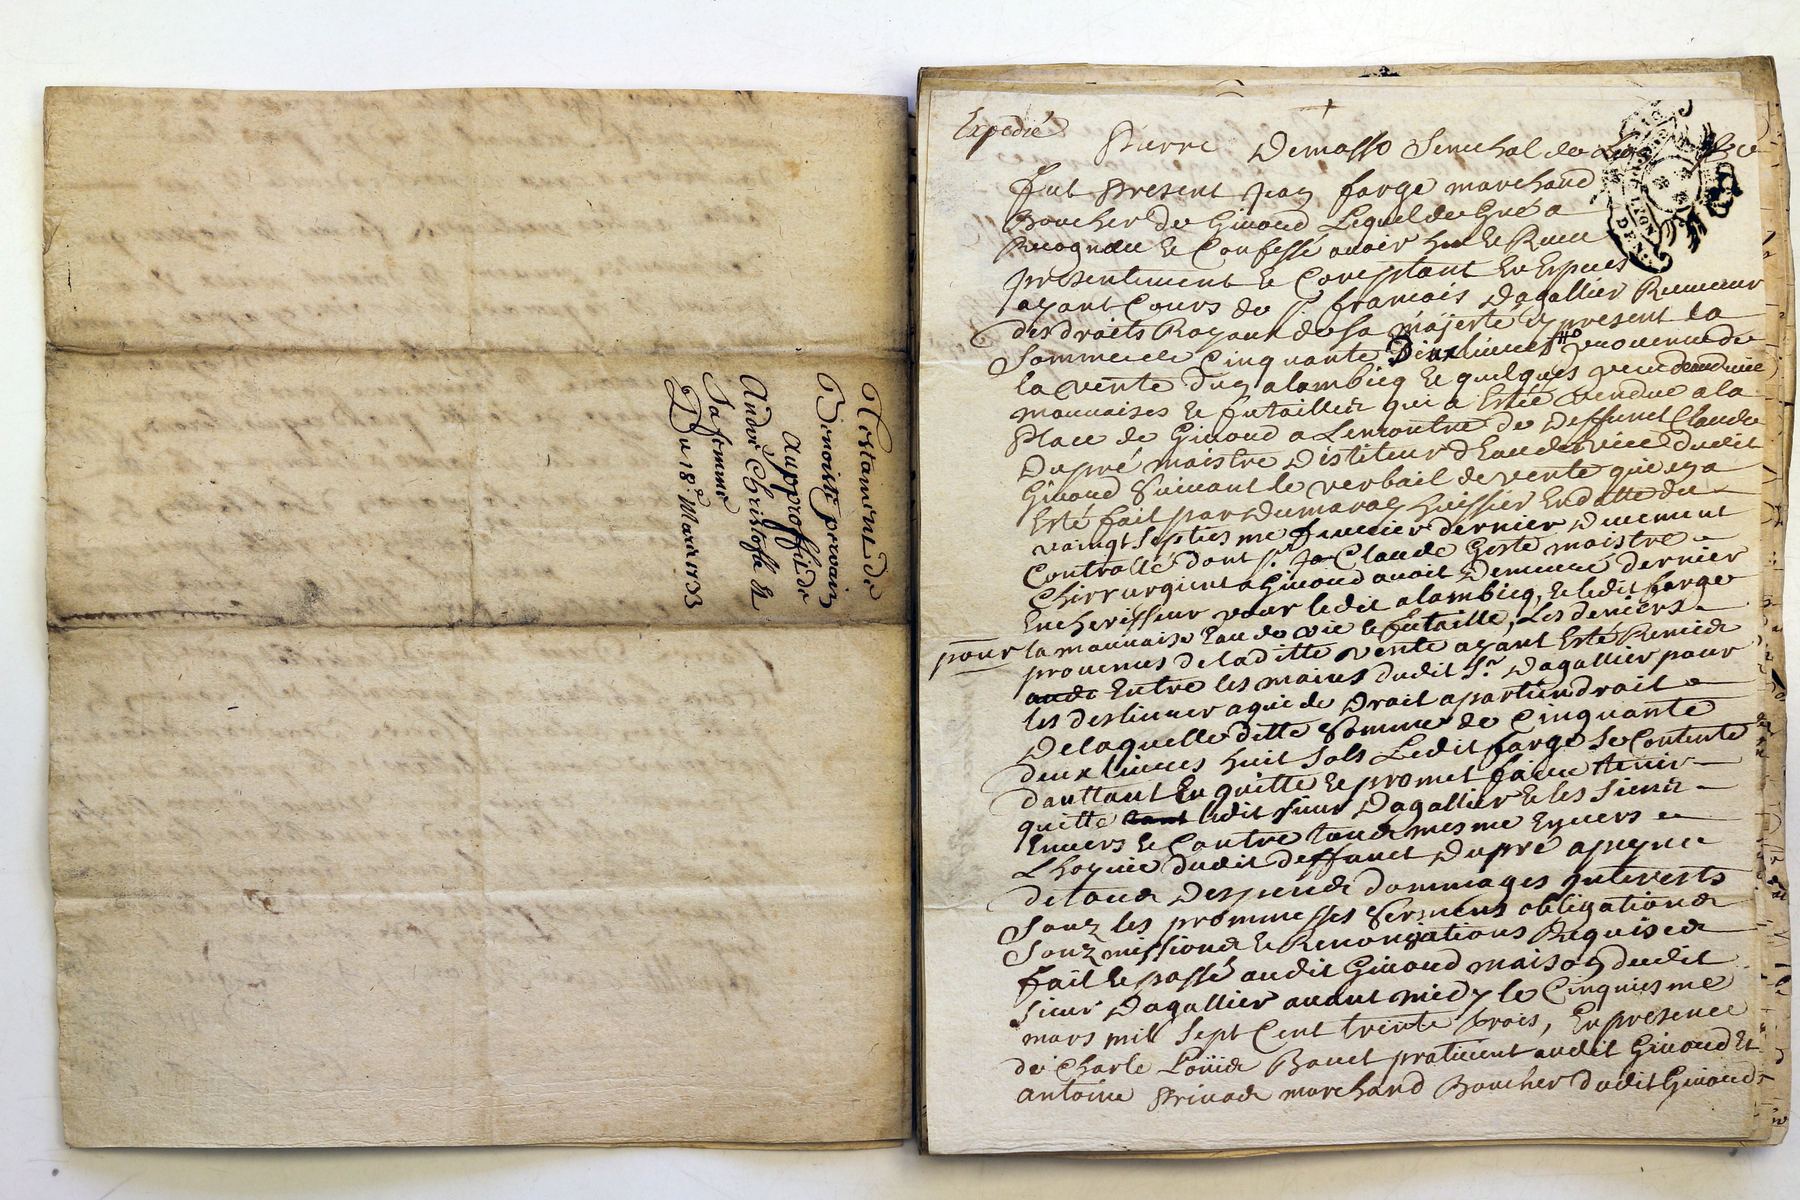 Testament de
Benoiste pervain
au proffit de
André Christofle et
Sa femme
Du 18e Mars 1733
Expedié
Pierre Demasso Senechal de Lyon
fut present Jean farge marchand
Boucher de Givord Lequel de Gré a
Recognu et Confessé avoir heu et Receu
presentement et Comptant En Especes
ayant Cours de Sr francois Dagallier Receveur
des droits Royaux de Sa majesté y present la
Somme de Cinquante Deux livres provenue de
la vente d'un alambicq et quelques
mauvaises et futailles qui a Esté vendue a la
Place de Givord a Lencontre de Deffunt Claude
Dupré maistre Distileur d'Eau de vice dudit
Givord Suivant le verbail de vente qui en a
Esté fait par Dumaray huissier En datte du
vaingt Septiesme feuvrier dernier Duement
Controllé dont Sr Claude Geste maistre
Chirrurgient a Givord avoit Demeuré dernier
Encherisseur pour ledit alambicq, et ledit farge
pour la mauvaise Eau de vie et futaille, Les deniers
provenus de laditte vente ayant Esté Remis
Entre les mains dudit Sr Dagallier pour
les deslivrer a qui de Droit apartiendroit
De laquelle ditte Somme de Cinquante
deux livres huit Sols Ledit farge Se Contente
dauttant En quitte et promet faire tenir
quitte ledit Sieur Dagallier et les Siens
Envers et Contre tous mesme Envers
L'hoyrie dudit deffunct Dupré a peyne
de tous Despends dommages Interests
Souz les prommesses Sermens obligations
Souzmissions et Renonciations Requises
fait et passé audit Givord maison dudit
Sieur Dagallier avant midy le Cinquiesme
mars mil Sept Cent trente trois, En presence
de Charle Loüis Bouet praticient audit Givord Et
Antoine Privas marchand Boucher dudit Givord